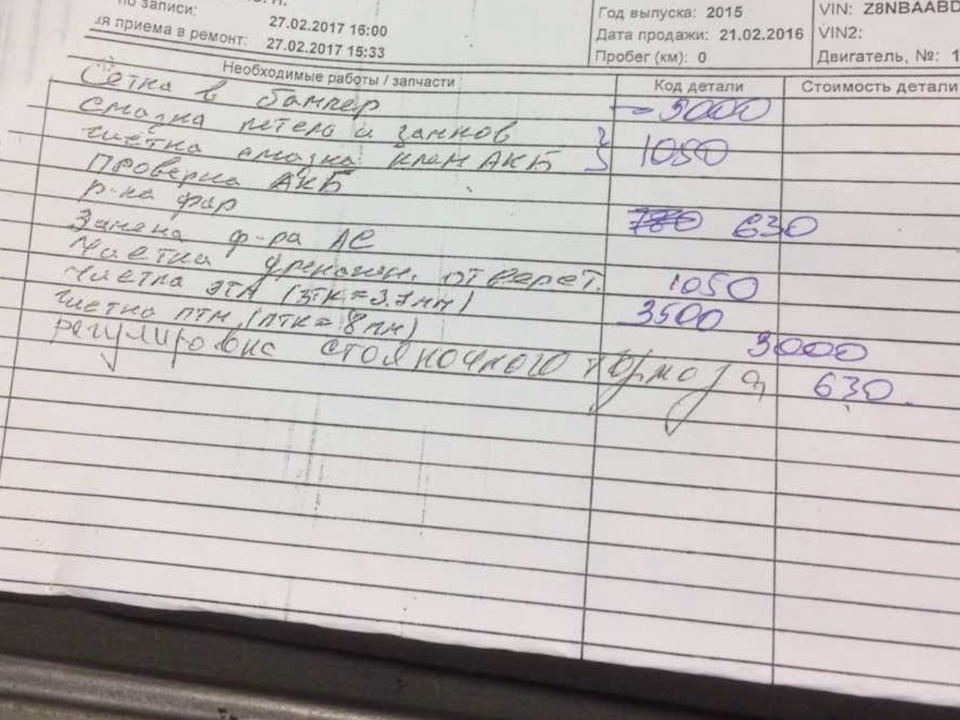 по записи: 27.02.2017 16:00
ия приема в ремонт: 27.02.2017 15:33
Год выпуска: 2015
Дата продажи: 21.02.2016
Пробег (км): 0
VIN: Z8NBAABD
VIN2:
Двигатель, №: 1
Необходимые работы / запчасти Код детали Стоимость детали
Сетка в бампер
смазка петель и замков } 1050
чистка смазка клем АКБ
Проверка АКБ
р-ка фар 780 630
Замена ф-ра АС
Чистка дренажн. отверст. 1050
Чистка ЗТМ (ЗТК=3.7мм) 3500
чистка ПТМ (ПТК=8мм) 3000
регулировка стояночного тормоза 630